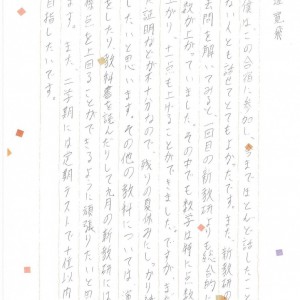 僕は、この合宿に参加し、今までほとんど話したこと
ない人とも話せてとてもよかったです。また、新教研の
去問を解いてみると、一回目の新教研よりも総合的
数が上がっていました。その中でも数学は特に点数
上がり、十一点も上げることができました。ですが、また
証明などがオナがなので、残りの夏休みにしっかり
したいと思います。その他の教科については、演
をしたり、教科書を読んだりして九月の新教研
毎点を上回ることができるように頑張りたいと
ます。また、二学期には定期テストで十位以内
目指したいです。